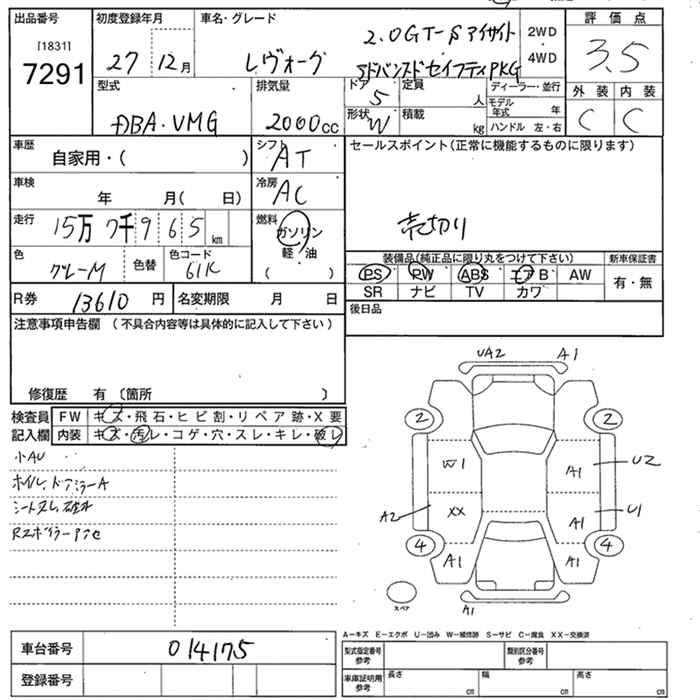 出品番号
[1831]
7291
初度登録年月
27 12月
車名・グレード
レヴォーグ
2.0GT-S アイサイト
アドバンスドセイフティPKG
2WD
4WD
評価点
3.5
外装 内装
C C
型式
DBA・VMG
排気量
2000cc
ドア
5
形状
W
定員
人
積載
kg
ディーラー・並行
モデル年式 年
ハンドル 左・右
車歴
自家用・( )
シフト
AT
車検
年 月( 日)
冷房
AC
走行
15万7千965km
燃料
ガソリン
軽・油
( )
色
グレーM
色替
色コード
61K
R券
13610円
名変期限 月 日
セールスポイント(正常に機能するものに限ります)
売切り
装備品(純正品に限り丸をつけて下さい)
PS PW ABS エアB AW
SR ナビ TV カワ
新車保証書
有・無
後日品
注意事項申告欄 (不具合内容等は具体的に記入して下さい)
修復歴 有 〔箇所 〕
検査員記入欄
FW キズ・飛石・ヒビ割・リペア跡・X要
内装 キズ・汚レ・コゲ・穴・スレ・キレ・破レ
小AU
ホイル、ドアミラーA
UA2 A1
2 2
W1 A1 U2
A2 XX A1 U1
4 4
A1 A1
スペア
A1
A-キズ E-エクボ U-凹み W-補修跡 S-サビ C-腐食 XX-交換済
車台番号
014175
登録番号
型式指定番号
参考
類別区分番号
参考
車庫証明用
参考
長さ cm
幅 cm
高さ cm